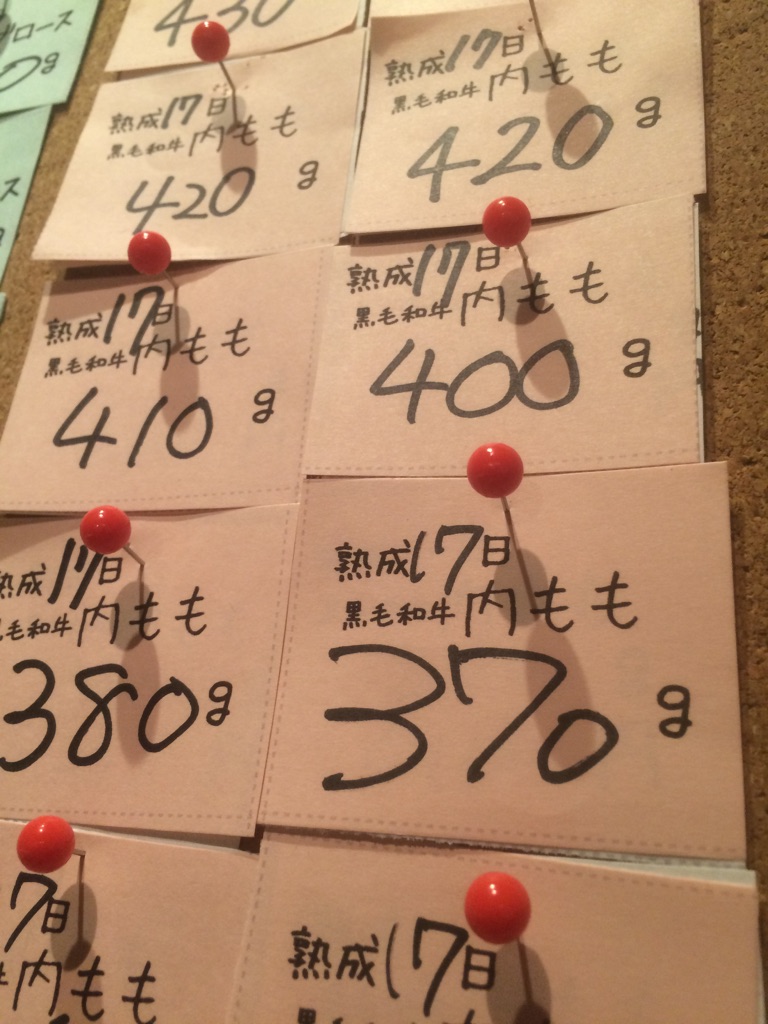 ロース
0g
430
熟成17日
黒毛和牛 内もも
420 g
熟成17日
黒毛和牛 内もも
420 g
熟成17日
黒毛和牛 内もも
410 g
熟成17日
黒毛和牛 内もも
400 g
熟成17日
毛和牛 内もも
380g
熟成17日
黒毛和牛 内もも
370 g
7日
内もも
熟成17日
ス
g